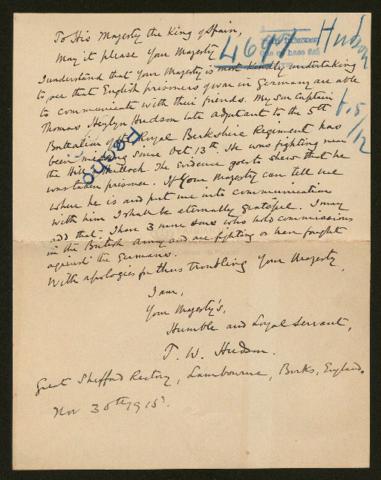 To His Majesty the King of Spain,
May it please Your Majesty
4691 Hudson
I understand that Your Majesty is most kindly undertaking
to see that English prisoners of war in Germany are able
to communicate with their friends. My son Captain
Thomas Heylyn Hudson late adjutant to the 5th
Battalion of the Royal Berkshire Regiment has
been missing since Oct 13th. He was fighting near
the Hill Hulloch. The evidence goes to shew that he
was taken prisoner. If Your Majesty can tell me
where he is and put me into communication
with him I shall be eternally grateful. I may
add that I have 3 more sons who hold commissions
in the British Army and are fighting or have fought
against the Germans.
With apologies for thus troubling Your Majesty,
I am,
Your Majesty's,
Humble and Loyal Servant,
T. W. Hudson.
Great Shefford Rectory, Lambourne, Berks, England.
Nov 30th 1915.